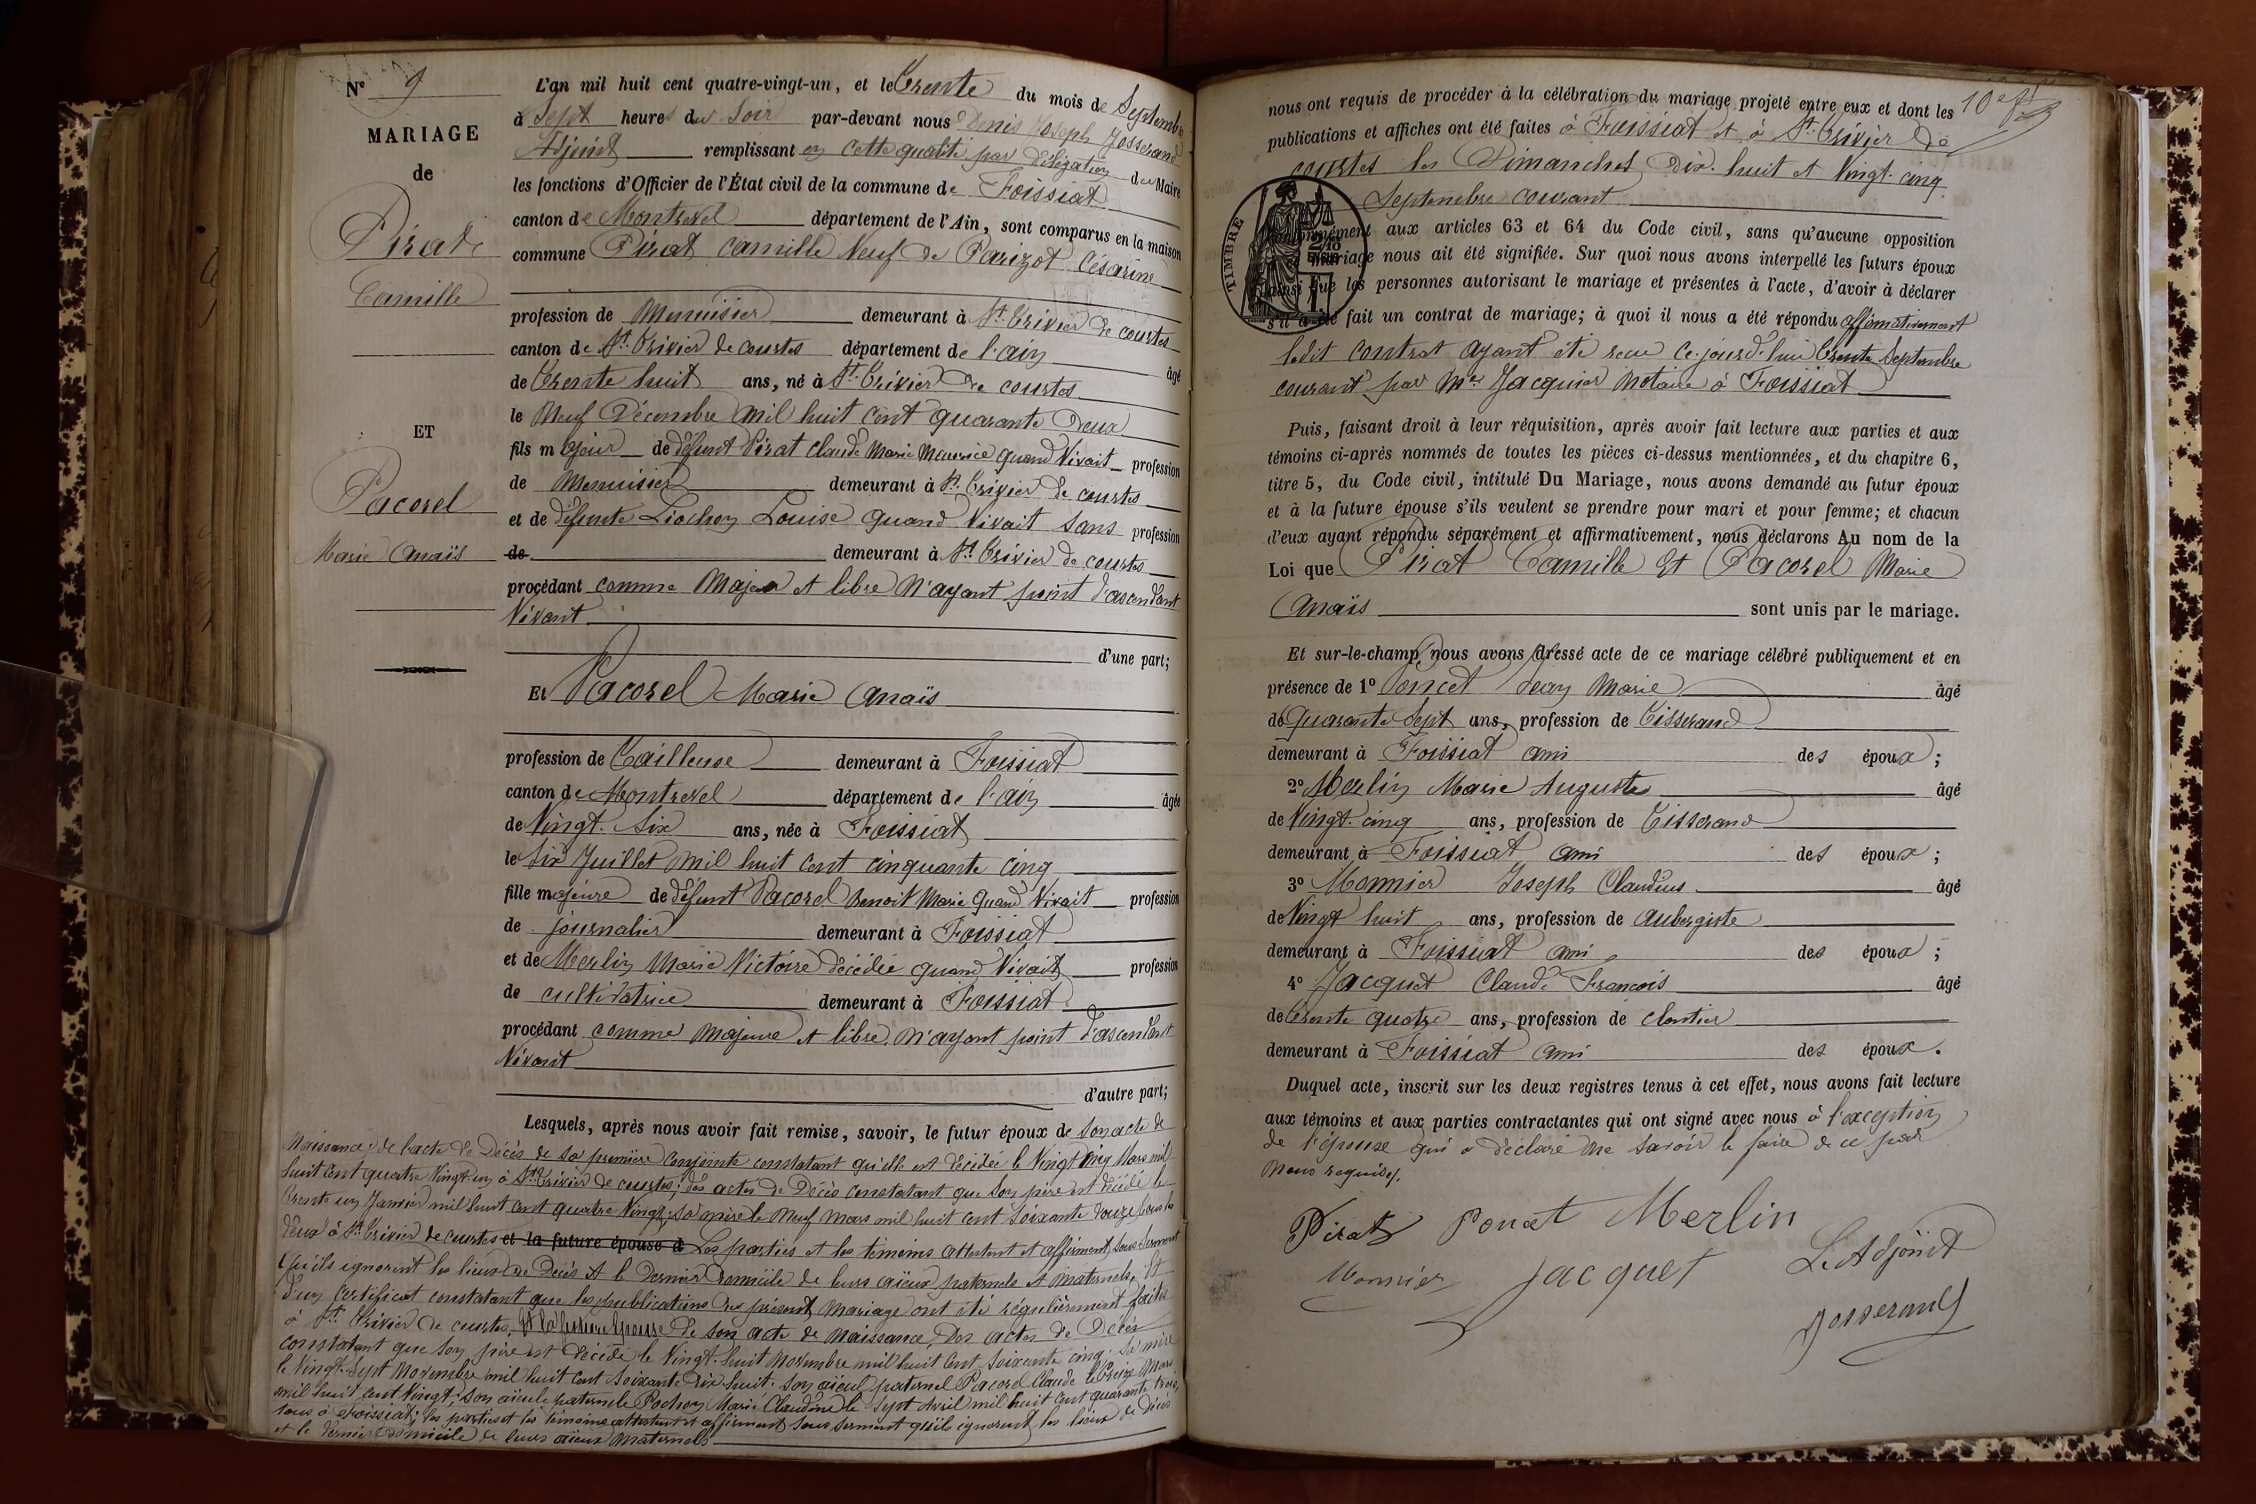 N° 9
MARIAGE
de
Pirat
Camille
ET
Pacorel
Marie Anaïs
L'an mil huit cent quatre-vingt-un, et le Trente du mois de Septembre
à Sept heures du Soir par-devant nous Denis Joseph Josserand
Adjoint remplissant en cette qualité par délégation du Maire
les fonctions d'Officier de l'État civil de la commune de Foissiat
canton de Montrevel département de l'Ain, sont comparus en la maison
commune Pirat Camille Veuf de Parizot Césarine
profession de Menuisier demeurant à St. Trivier de courtes
canton de St. Trivier de courtes département de l'ain âgé
de Trente huit ans, né à St. Trivier de courtes
le Neuf Décembre mil huit cent quarante Deux
fils majeur de défunt Pirat Claude Marie Maurice quand Vivait profession
de Menuisier demeurant à St. Trivier de courtes
et de défunte Liochon Louise quand Vivait sans profession
de demeurant à St. Trivier de courtes
procédant comme Majeur et libre N'ayant point d'ascendant
Vivant
d'une part;
Et Pacorel Marie Anaïs
profession de Tailleuse demeurant à Foissiat
canton de Montrevel département de l'ain âgée
de Vingt. Six ans, née à Foissiat
le Six Juillet mil huit cent cinquante cinq
fille majeure de défunt Pacorel Benoit Marie quand Vivait profession
de journalier demeurant à Foissiat
et de Merlin Marie Victoire décédée quand Vivait profession
de cultivatrice demeurant à Foissiat
procédant comme majeure et libre N'ayant point d'ascendant
Vivant
d'autre part;
Lesquels, après nous avoir fait remise, savoir, le futur époux de son acte de
Naissance, de l'acte de Décès de sa première conjointe constatant qu'elle est décédée le Vingt cinq Mars mil
huit cent quatre Vingt un à St. Trivier de courtes; des actes de Décès constatant que Son père est décédé le
trente un Janvier mil huit cent quatre Vingt; sa mère le Neuf Mars mil huit cent soixante Douze tous les
deux à St. Trivier de courtes et la future épouse d Les parties et les témoins attestent et affirment sous serment
qu'ils ignorent les lieux de Décès et le Dernier Domicile de leurs aïeux paternels et maternels. Et
d'un certificat constatant que les publications du présent mariage ont été régulièrement faites
à St. Trivier de courtes. Et la future Epouse de son acte de Naissance, Des actes de Décès
constatant que son père est décédé le Vingt. huit Novembre mil huit cent soixante cinq. Sa mère
le Vingt. Sept Novembre mil huit cent soixante dix. huit. son aïeul paternel Pacorel Claude le Treize Mars
mil huit cent Vingt; son aïeule paternelle Pochon Marie Claudine le Sept Avril mil huit cent quarante trois,
tous à Foissiat; les parties et les témoins attestent et affirment sous serment qu'ils ignorent les lieux de décès
et le dernier domicile de leurs aïeux Maternels
nous ont requis de procéder à la célébration du mariage projeté entre eux et dont les
publications et affiches ont été faites à Foissiat et à St. Trivier de
courtes les Dimanches Dix. huit et Vingt. cinq
Septembre courant
TIMBRE
aux articles 63 et 64 du Code civil, sans qu'aucune opposition
mariage nous ait été signifiée. Sur quoi nous avons interpellé les futurs époux
ainsi que les personnes autorisant le mariage et présentes à l'acte, d'avoir à déclarer
s'il a été fait un contrat de mariage; à quoi il nous a été répondu affirmativement
ledit contrat ayant été reçu ce. jourd'hui trente Septembre
courant par Me. Jacquier Notaire à Foissiat
Puis, faisant droit à leur réquisition, après avoir fait lecture aux parties et aux
témoins ci-après nommés de toutes les pièces ci-dessus mentionnées, et du chapitre 6,
titre 5, du Code civil, intitulé Du Mariage, nous avons demandé au futur époux
et à la future épouse s'ils veulent se prendre pour mari et pour femme; et chacun
d'eux ayant répondu séparément et affirmativement, nous déclarons Au nom de la
Loi que Pirat Camille Et Pacorel Marie
Anaïs sont unis par le mariage.
Et sur-le-champ nous avons dressé acte de ce mariage célébré publiquement et en
présence de 1° Poncet Jean Marie âgé
de quarante Sept ans, profession de Tisserand
demeurant à Foissiat ami des époux;
2° Merlin Marie Auguste âgé
de Vingt. cinq ans, profession de Tisserand
demeurant à Foissiat ami des époux;
3° Monnier Joseph Claudius âgé
de Vingt huit ans, profession de aubergiste
demeurant à Foissiat ami des époux;
4° Jacquet Claude François âgé
de trente quatre ans, profession de cloutier
demeurant à Foissiat ami des époux.
Duquel acte, inscrit sur les deux registres tenus à cet effet, nous avons fait lecture
aux témoins et aux parties contractantes qui ont signé avec nous à l'exception
de l'épouse qui a déclaré ne savoir le faire de ce par
Nous requise.
Pirat Poncet Merlin
Monnier Jacquet L'Adjoint
Josserand